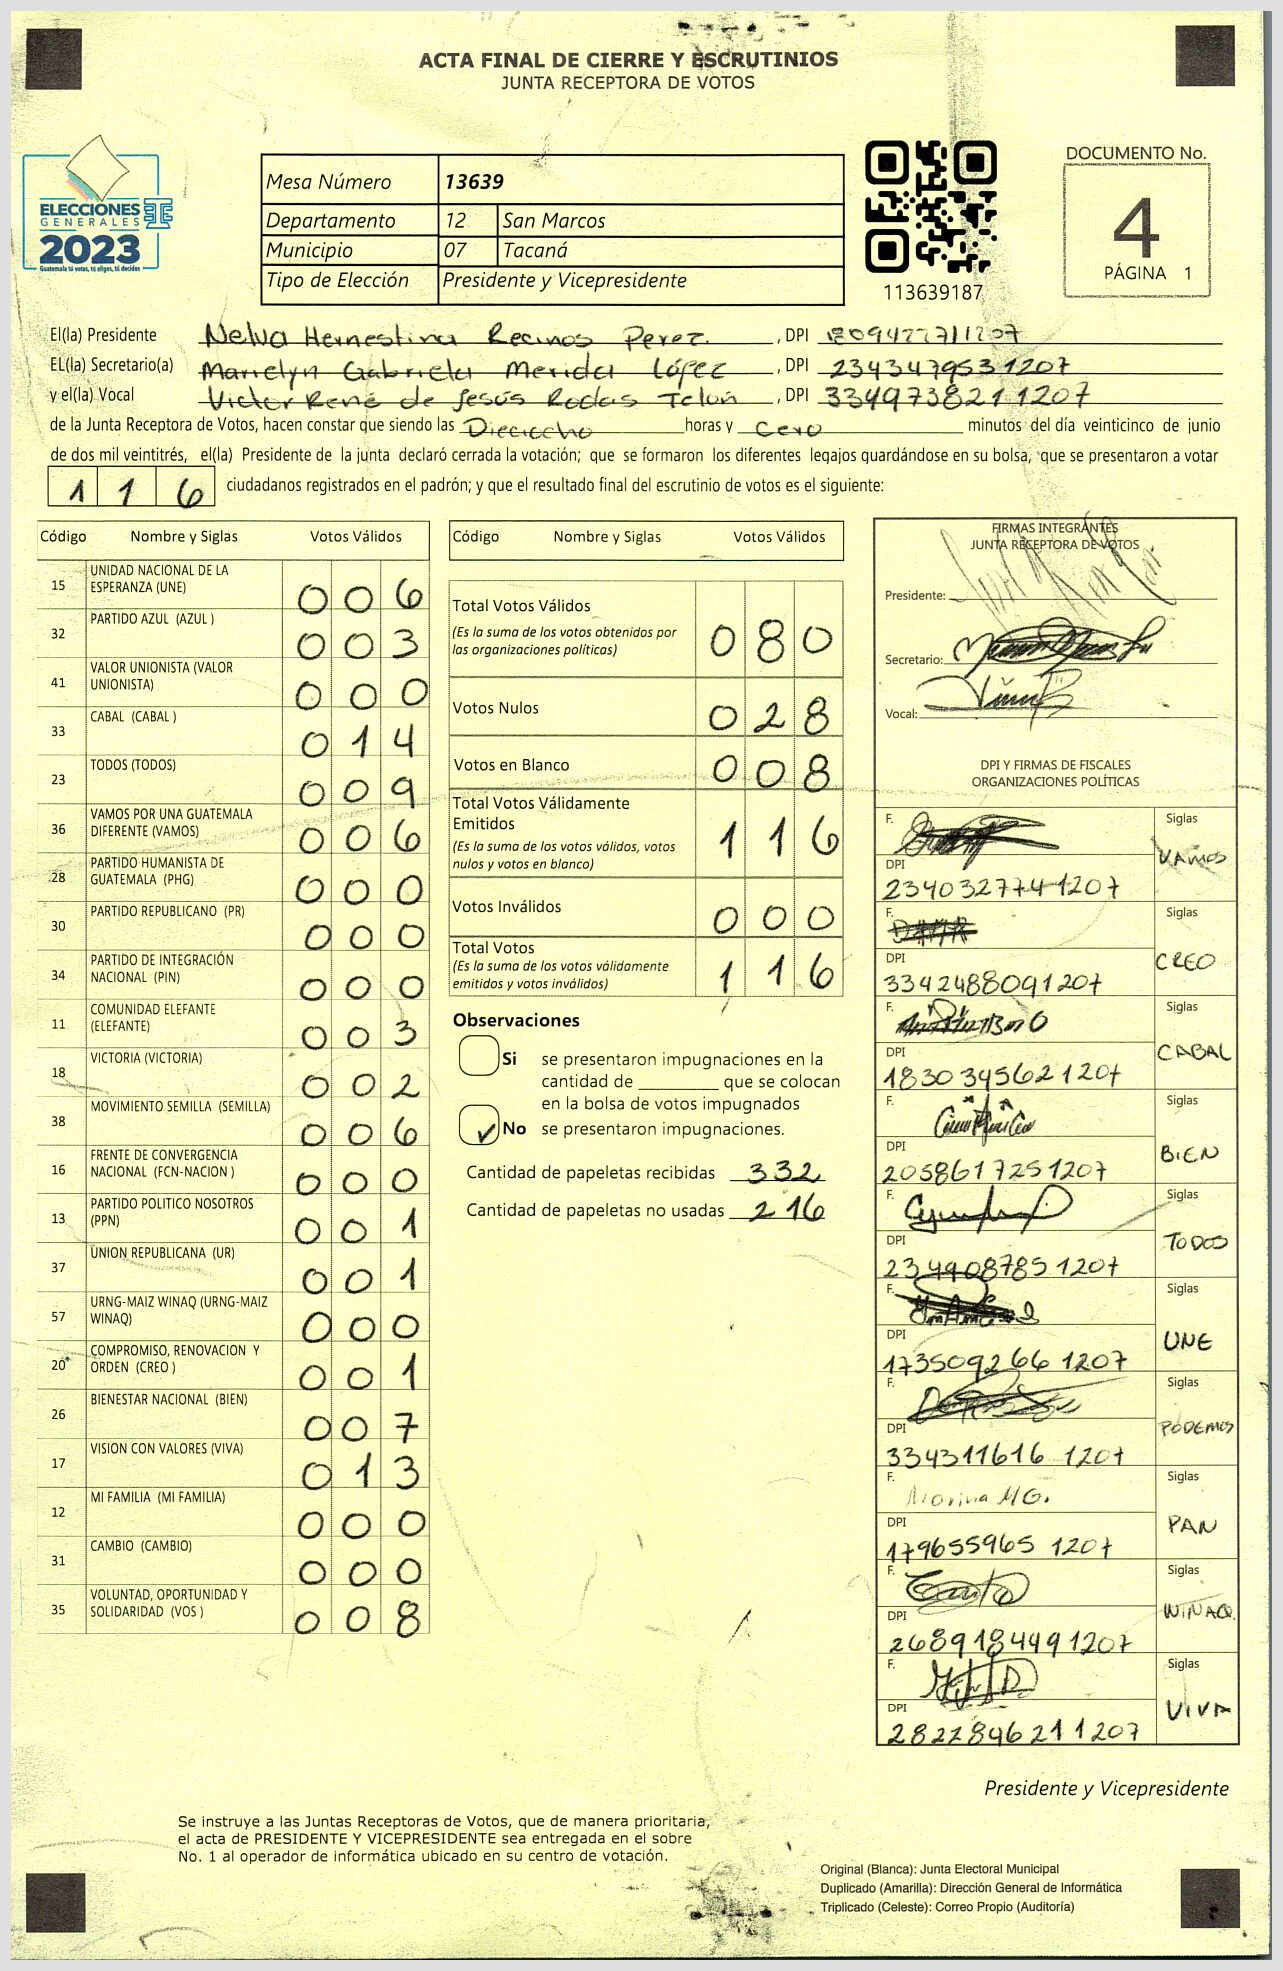 ACTA FINAL DE CIERRE Y ESCRUTINIOS
JUNTA RECEPTORA DE VOTOS
ELECCIONES
GENERALES
2023
Guatemala tú votas, tú eliges, tú decides
Mesa Número 13639
Departamento 12 San Marcos
Municipio 07 Tacaná
Tipo de Elección Presidente y Vicepresidente
113639187
DOCUMENTO No.
4
PÁGINA 1
El(la) Presidente Nelva Hernestina Recinos Perez. , DPI
EL(la) Secretario(a) Marielyn Gabriela Merida López , DPI 2343479531207
y el(la) Vocal Victor René de Jesús Rodas Telón , DPI 3349738211207
de la Junta Receptora de Votos, hacen constar que siendo las Dieciocho horas y Cero minutos del día veinticinco de junio
de dos mil veintitrés, el(la) Presidente de la junta declaró cerrada la votación; que se formaron los diferentes legajos guardándose en su bolsa, que se presentaron a votar
1 1 6 ciudadanos registrados en el padrón; y que el resultado final del escrutinio de votos es el siguiente:
Código Nombre y Siglas Votos Válidos
15 UNIDAD NACIONAL DE LA ESPERANZA (UNE) 0 0 6
32 PARTIDO AZUL (AZUL ) 0 0 3
41 VALOR UNIONISTA (VALOR UNIONISTA) 0 0 0
33 CABAL (CABAL ) 0 1 4
23 TODOS (TODOS) 0 0 9
36 VAMOS POR UNA GUATEMALA DIFERENTE (VAMOS) 0 0 6
28 PARTIDO HUMANISTA DE GUATEMALA (PHG) 0 0 0
30 PARTIDO REPUBLICANO (PR) 0 0 0
34 PARTIDO DE INTEGRACIÓN NACIONAL (PIN) 0 0 0
11 COMUNIDAD ELEFANTE (ELEFANTE) 0 0 3
18 VICTORIA (VICTORIA) 0 0 2
38 MOVIMIENTO SEMILLA (SEMILLA) 0 0 6
16 FRENTE DE CONVERGENCIA NACIONAL (FCN-NACION ) 0 0 0
13 PARTIDO POLITICO NOSOTROS (PPN) 0 0 1
37 UNION REPUBLICANA (UR) 0 0 1
57 URNG-MAIZ WINAQ (URNG-MAIZ WINAQ) 0 0 0
20 COMPROMISO, RENOVACION Y ORDEN (CREO ) 0 0 1
26 BIENESTAR NACIONAL (BIEN) 0 0 7
17 VISION CON VALORES (VIVA) 0 1 3
12 MI FAMILIA (MI FAMILIA) 0 0 0
31 CAMBIO (CAMBIO) 0 0 0
35 VOLUNTAD, OPORTUNIDAD Y SOLIDARIDAD (VOS ) 0 0 8
Código Nombre y Siglas Votos Válidos
Total Votos Válidos 0 8 0
(Es la suma de los votos obtenidos por
las organizaciones políticas)
Votos Nulos 0 2 8
Votos en Blanco 0 0 8
Total Votos Válidamente
Emitidos 1 1 6
(Es la suma de los votos válidos, votos
nulos y votos en blanco)
Votos Inválidos 0 0 0
Total Votos 1 1 6
(Es la suma de los votos válidamente
emitidos y votos inválidos)
Observaciones
Si se presentaron impugnaciones en la
cantidad de ________ que se colocan
en la bolsa de votos impugnados
No se presentaron impugnaciones.
Cantidad de papeletas recibidas 332
Cantidad de papeletas no usadas 216
FIRMAS INTEGRANTES
JUNTA RECEPTORA DE VOTOS
Presidente:
Secretario:
Vocal:
DPI Y FIRMAS DE FISCALES
ORGANIZACIONES POLÍTICAS
F. Siglas
VAMOS
DPI
2340327741207
F. Siglas
CREO
DPI
3342488091207
F. Siglas
CABAL
DPI
1830345621207
F. Siglas
BIEN
DPI
2058617251207
F. Siglas
TODOS
DPI
2349087851207
F. Siglas
UNE
DPI
1735092661207
F. Siglas
PODEMOS
DPI
334311616 1207
F. Siglas
Marina MG.
PAN
DPI
179655965 1207
F. Siglas
WINAQ.
DPI
2689184491207
F. Siglas
VIVA
DPI
2822846211207
Presidente y Vicepresidente
Se instruye a las Juntas Receptoras de Votos, que de manera prioritaria,
el acta de PRESIDENTE Y VICEPRESIDENTE sea entregada en el sobre
No. 1 al operador de informática ubicado en su centro de votación.
Original (Blanca): Junta Electoral Municipal
Duplicado (Amarilla): Dirección General de Informática
Triplicado (Celeste): Correo Propio (Auditoría)